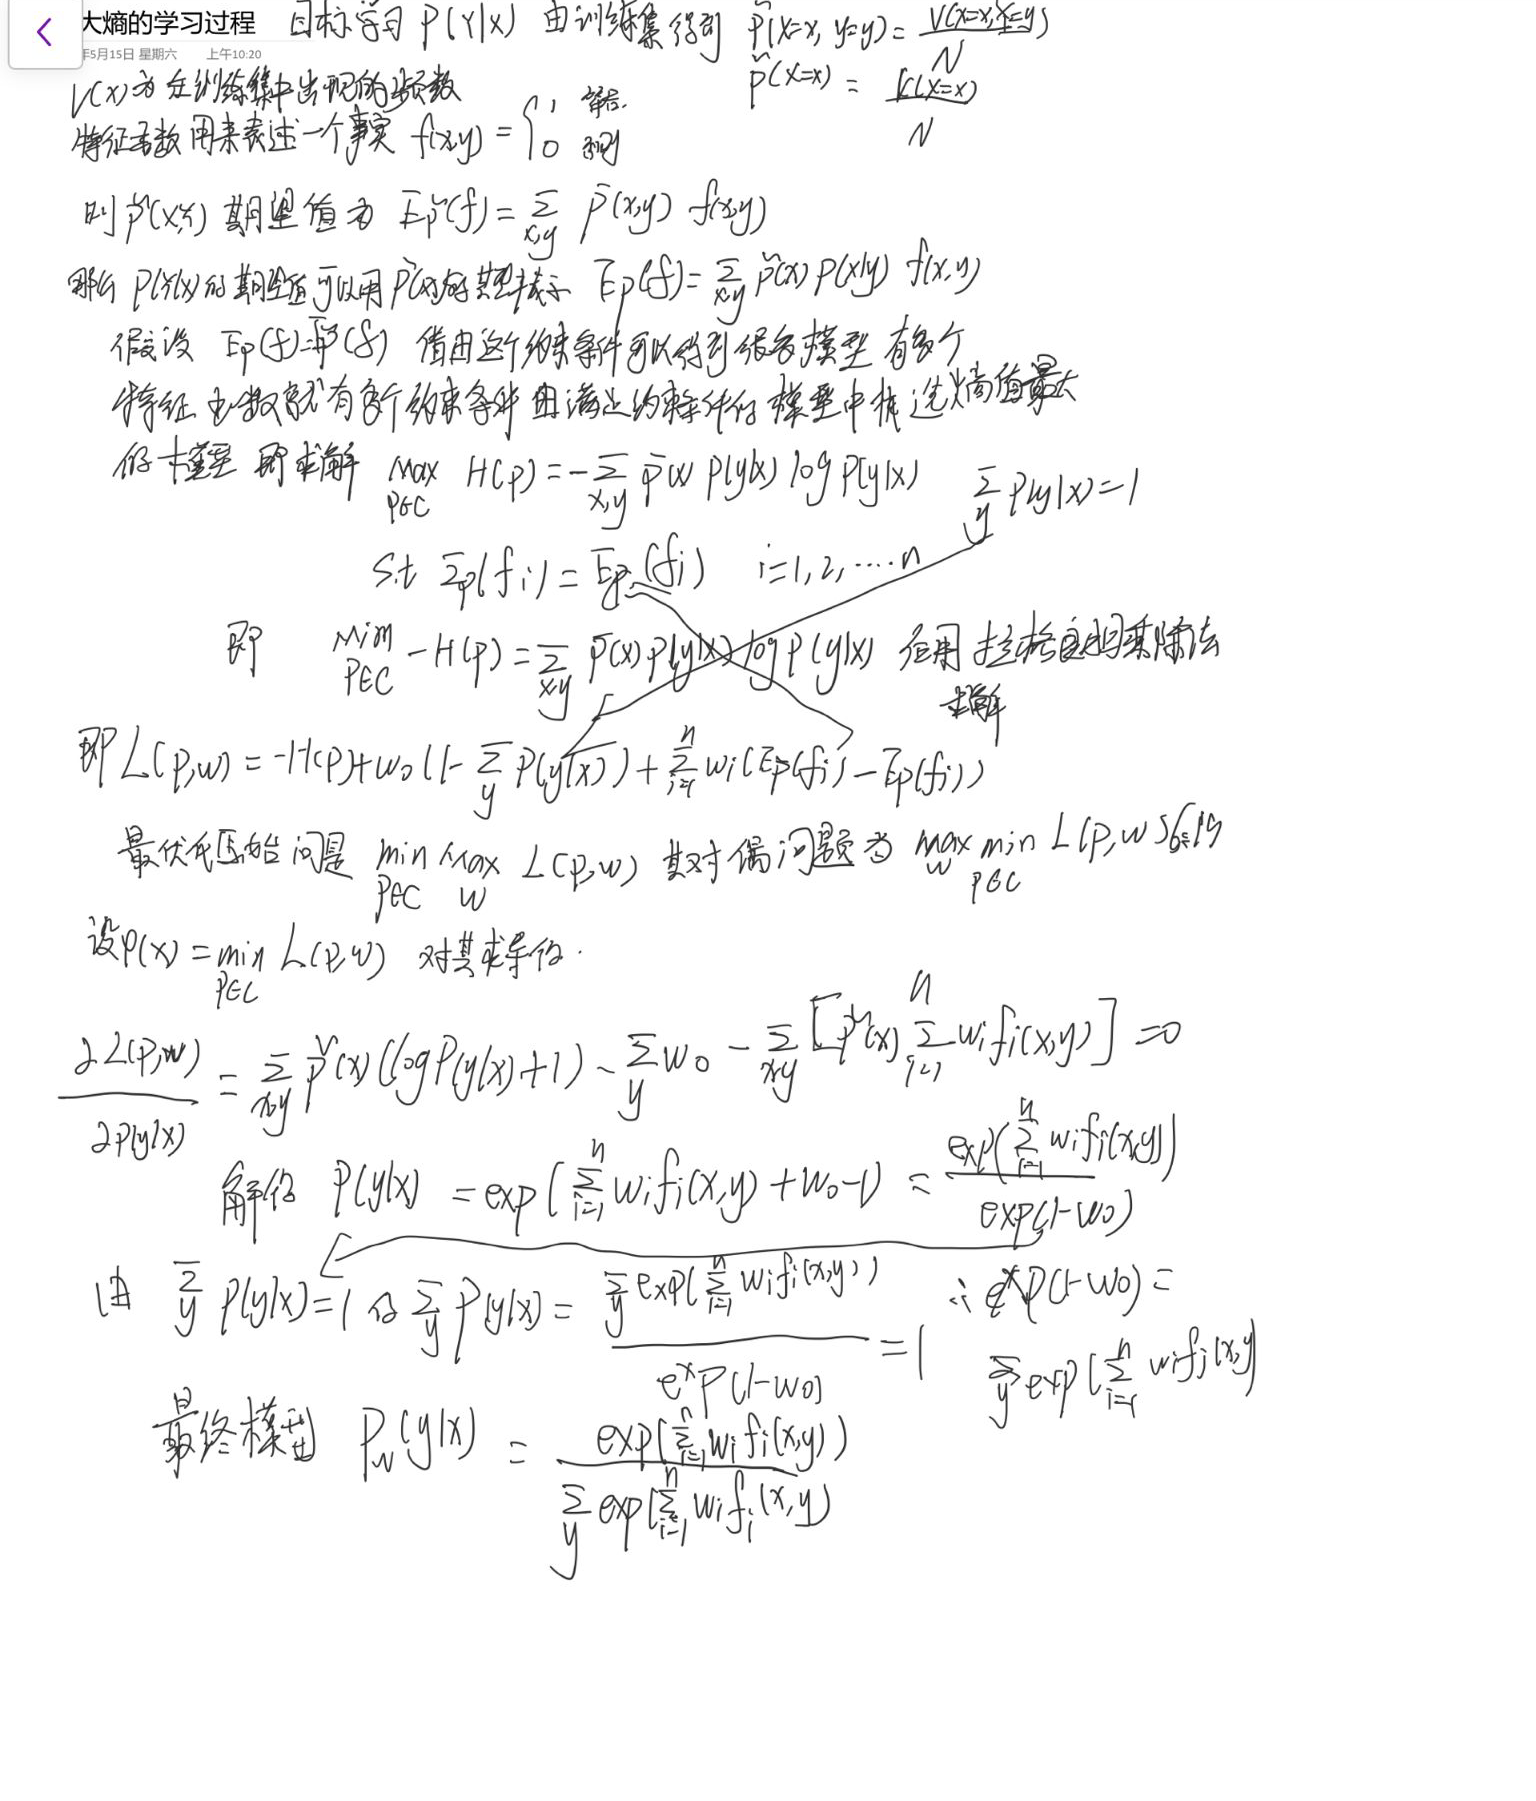 大熵的学习过程 目标学习 P(Y|X) 由训练集得到 P̃(X=x, Y=y) = V(X=x, Y=y) / N
年5月15日 星期六 上午10:20
P̃(X=x) = V(X=x) / N
V(X)为在训练集中出现的频数
特征函数用来表述一个事实 f(x,y) = { 1 0 否则
则 P̃(X,Y) 期望值为 Ep̃(f) = Σ_{x,y} P̃(x,y) f(x,y)
那么 P(Y|X)的期望值可以用 P̃(x)的期望表示 Ep(f) = Σ_{x,y} P̃(x) P(x|y) f(x,y)
假设 Ep(f) = Ep̃(f) 借由这个约束条件可以得到很多模型 有多个
特征函数就有多个约束条件 由满足约束条件的模型中挑选熵值最大
的模型 即求解 max_{P∈C} H(p) = -Σ_{x,y} P̃(x) P(y|x) log P(y|x) Σ_y P(y|x) = 1
s.t Ep(fi) = Ep̃(fi) i=1,2,....n
即 min_{P∈C} -H(p) = Σ_{x,y} P̃(x) P(y|x) log P(y|x) 使用拉格朗日乘除法
求解
即 L(p,w) = -H(p) + w0(1 - Σ_y P(y|x)) + Σ_{i=1}^n wi(Ep̃(fi) - Ep(fi))
最优化原始问题 min_{P∈C} max_w L(p,w) 其对偶问题为 max_w min_{P∈C} L(p,w)
设 φ(x) = min_{P∈C} L(p,w) 对其求导得.
∂L(p,w) / ∂P(y|x) = Σ_{x,y} P̃(x)(log P(y|x)+1) - Σ_y w0 - Σ_{x,y} [P̃(x) Σ_{i=1}^n wi fi(x,y)] = 0
解得 P(y|x) = exp(Σ_{i=1}^n wi fi(x,y) + w0 - 1) = exp(Σ_{i=1}^n wi fi(x,y)) / exp(1-w0)
由 Σ_y P(y|x) = 1 得 Σ_y P(y|x) = Σ_y exp(Σ_{i=1}^n wi fi(x,y)) / exp(1-w0) = 1 ∴ exp(1-w0) =
Σ_y exp(Σ_{i=1}^n wi fi(x,y)
最终模型 Pw(y|x) = exp(Σ_{i=1}^n wi fi(x,y)) / Σ_y exp(Σ_{i=1}^n wi fi(x,y)